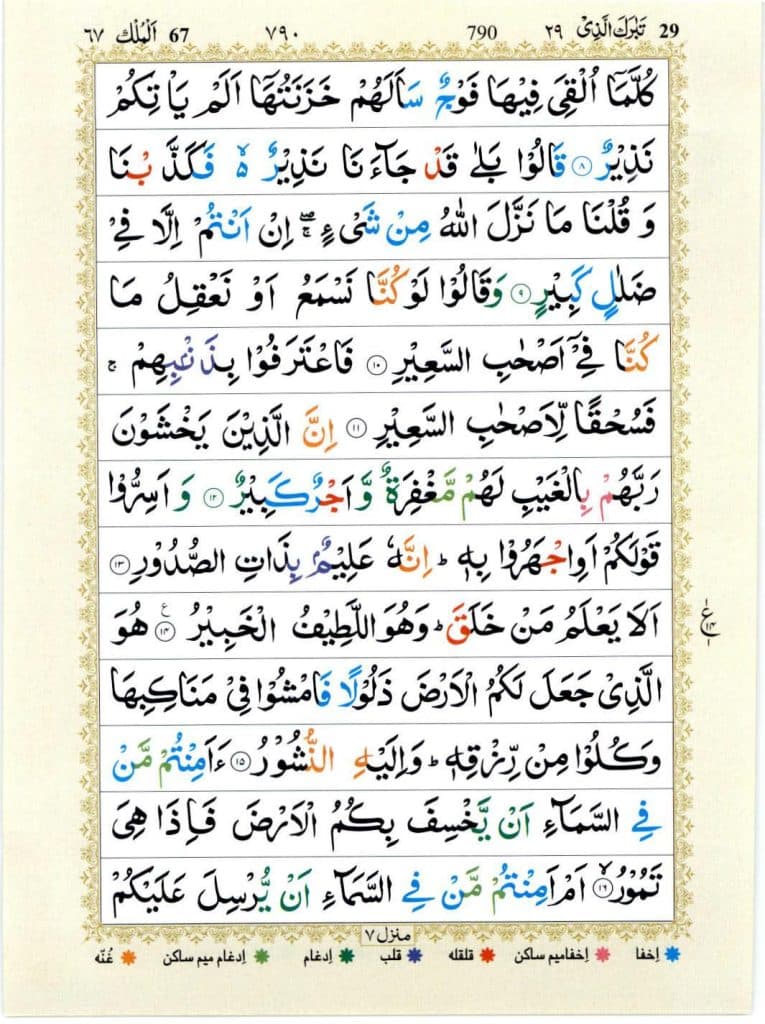 29 تَبٰرَكَ الَّذِیْ ٢٩ 790 ٧٩٠ 67 اَلْمُلْك ٦٧
كُلَّمَاۤ اُلْقِیَ فِیْهَا فَوْجٌ سَاَلَهُمْ خَزَنَتُهَاۤ اَلَمْ یَاْتِكُمْ
نَذِیْرٌ ﴿٨﴾ قَالُوْا بَلٰی قَدْ جَآءَنَا نَذِیْرٌ ۙ۬ فَكَذَّبْنَا
وَ قُلْنَا مَا نَزَّلَ اللّٰهُ مِنْ شَیْءٍ ۖۚ اِنْ اَنْتُمْ اِلَّا فِیْ
ضَلٰلٍ كَبِیْرٍ ﴿٩﴾ وَقَالُوْا لَوْ كُنَّا نَسْمَعُ اَوْ نَعْقِلُ مَا
كُنَّا فِیْۤ اَصْحٰبِ السَّعِیْرِ ﴿١٠﴾ فَاعْتَرَفُوْا بِذَنْۢبِهِمْ ۚ
فَسُحْقًا لِّاَصْحٰبِ السَّعِیْرِ ﴿١١﴾ اِنَّ الَّذِیْنَ یَخْشَوْنَ
رَبَّهُمْ بِالْغَیْبِ لَهُمْ مَّغْفِرَةٌ وَّ اَجْرٌ كَبِیْرٌ ﴿١٢﴾ وَ اَسِرُّوْا
قَوْلَكُمْ اَوِ اجْهَرُوْا بِهٖ ؕ اِنَّهٗ عَلِیْمٌۢ بِذَاتِ الصُّدُوْرِ ﴿١٣﴾
اَلَا یَعْلَمُ مَنْ خَلَقَ ؕ وَهُوَ اللَّطِیْفُ الْخَبِیْرُ ﴿١٤﴾ ع هُوَ
الَّذِیْ جَعَلَ لَكُمُ الْاَرْضَ ذَلُوْلًا فَامْشُوْا فِیْ مَنَاكِبِهَا
وَكُلُوْا مِنْ رِّزْقِهٖ ؕ وَاِلَیْهِ النُّشُوْرُ ﴿١٥﴾ ءَاَمِنْتُمْ مَّنْ
فِی السَّمَآءِ اَنْ یَّخْسِفَ بِكُمُ الْاَرْضَ فَاِذَا هِیَ
تَمُوْرُ ۙ﴿١٦﴾ اَمْ اَمِنْتُمْ مَّنْ فِی السَّمَآءِ اَنْ یُّرْسِلَ عَلَیْكُمْ
منزل ٧
اِخفا اِخفامیم ساکن قلقله قلب اِدغام اِدغام میم ساکن غُنّه